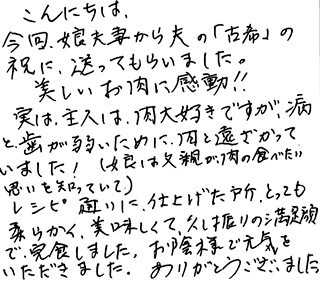 こんにちは、
今回、娘夫妻から夫の「古希」の
祝に、送ってもらいました。
美しいお肉に感動!!
実は、主人は、肉大好きですが、病
と、歯が弱いために、肉と遠ざかって
いました!(娘は父親が肉の食べたい
思いを知っていて)
レシピ通りに、仕上げた所、とっても
柔らかく、美味しくて、久し振りの満足顔
で、完食しました。お陰様で元気を
いただきました。ありがとうございました